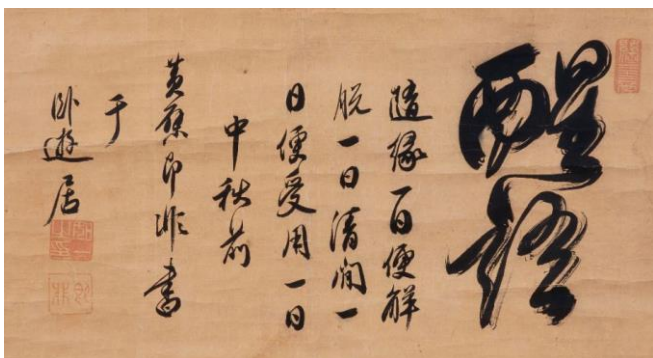 醒語
隨緣一日便解
脫一日清閒一
日便受用一日
中秋前
黃檗即非書
于
臥遊居